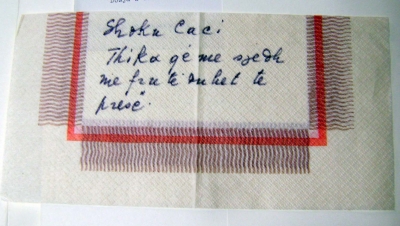 Shoku Caci
Thika që me
me fruta duhet te
presë.